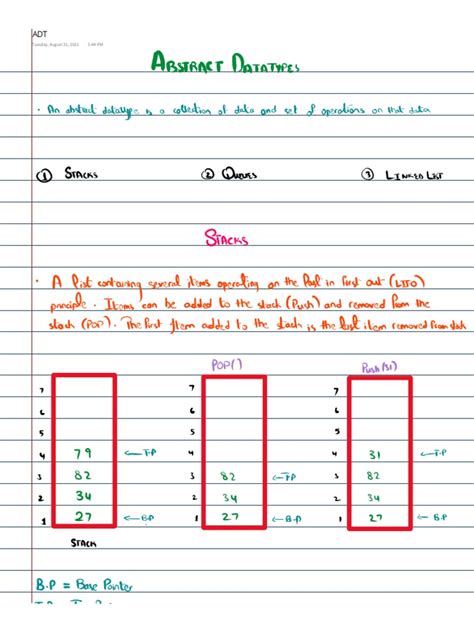 ADT
Tuesday, August 31, 2021 5:44 PM
ABSTRACT DATATYPES
· An abstract datatype is a collection of data and set of operations on that data
① STACKS ② QUEUES ③ LINKED LIST
STACKS
· A list containing several items operating on the last in first out (LIFO)
principle. Items can be added to the stack (Push) and removed from the
stack (POP). The first item added to the stack is the last item removed from stack
POP() Push(31)
7 7 7
6 6 6
5 5 5
4 79 ←T.P 4 4 31 ←T.P
3 82 3 82 ←T.P 3 82
2 34 2 34 2 34
1 27 ←B.P 1 27 ←B.P 1 27 ←B.P
STACK
B.P = Base Pointer